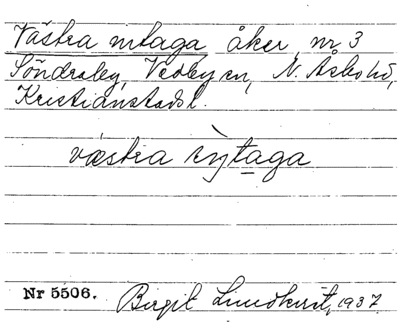 Västra intaga åker nr 3
Söndraby, Vedby sn, N. Åsbo hd,
Kristianstads l.
væstra iŋtaga
Nr 5506. Birgit Lundkvist, 1937